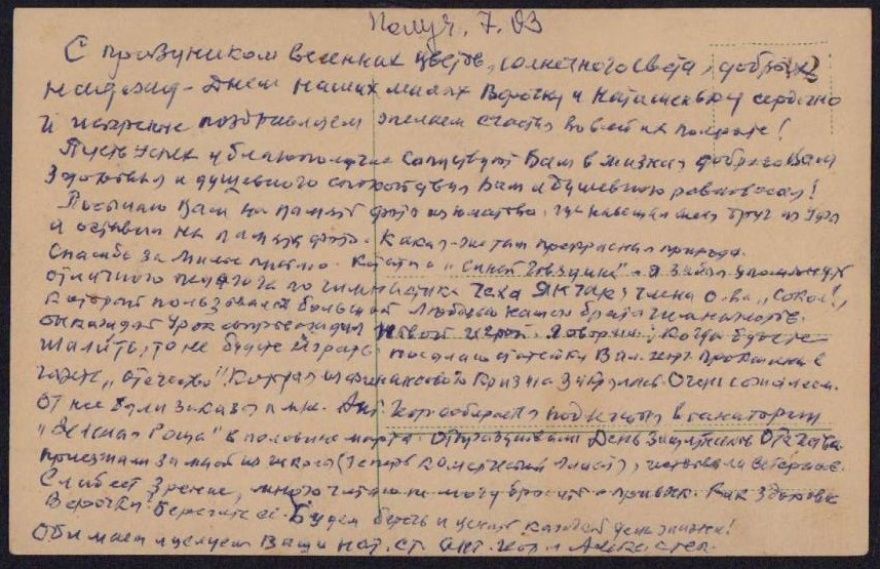 Получ. 7. 03
С праздником весенних цветов, солнечного света, добрых
надежд - Днем наших милых Верочку и Наташеньку сердечно
и искренне поздравляем желаем счастья во всей их полноте!
Пусть успех и благополучие сопутствуют Вам в жизни, доброго Вам
здоровья и душевного спокойствия Вам и душевного равновесия!
Посылаю Вам на память фото из юности, где навещал меня друг из Уфы
и оставил на память фото. Какая-же там прекрасная природа.
Спасибо за милое письмо. Кстати о "синей говядине" - Я забыл упомянуть
отличного педагога по гимнастике чеха Якчак, члена о-ва "Сокол",
который пользовался большой любовью нашего брата гимназистов.
он каждый урок сопровождал новой игрой. Я говорил: Когда будете
шалить, то не будете играть. послала статейку Вал. о
газете "Отечество". Которая из финансового кризиса закрылась. Очень сожалеем.
От нее были заказы и мне. Ант. собирается под в санаторий
"Зеленая Роща" в половине марта. Отпраздновали День Защитников Отечества.
приезжали за мной из школы (теперь коммерческий лицей), чествовали ветеранов.
Слабеет зрение, много читаю не могу бросить привык. Как здоровье
Верочки? Берегите её. Будем беречь и ценить каждый день жизни!
Обнимаем и целуем Ваши ст. Ант.